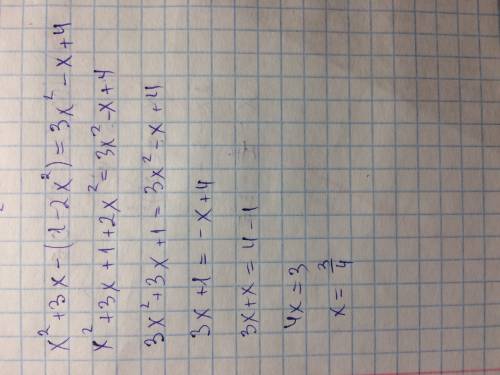 x² + 3x - (1 - 2x²) = 3x² - x + 4
x² + 3x + 1 + 2x² = 3x² - x + 4
3x² + 3x + 1 = 3x² - x + 4
3x + 1 = -x + 4
3x + x = 4 - 1
4x = 3
x = 3/4